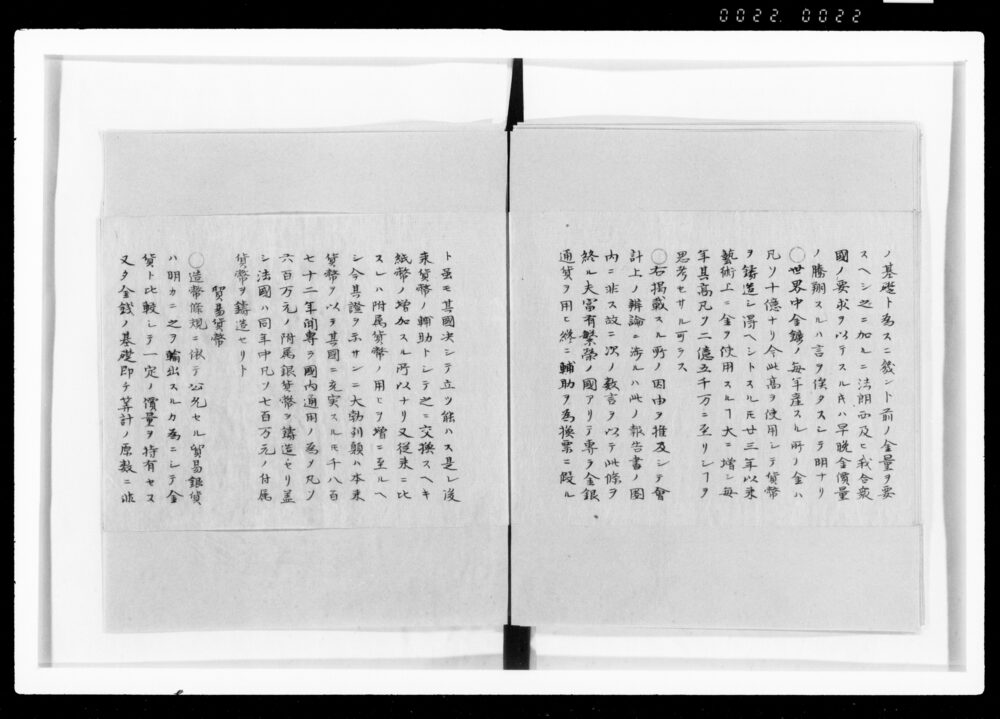 0022. 0022
ノ基礎ト為スニ幾ント前ノ金量ヲ要
スヘシ之ニ加ルニ法朗西及ヒ我合衆
國ノ要求ヲ以テスルキハ早晩金價量
ノ騰翔スルハ言ヲ俟タスシテ明ナリ
○世界中金鑛ノ毎年産スル所ノ金ハ
凡ソ十億ナリ今此高ヲ使用シテ貨幣
ヲ鋳造シ得ヘシトスルモ廿三年以来
藝術上ニ金ヲ使用スルヿ大ニ増シ毎
年其高凡ソ二億五千万ニ至リシヿヲ
思考セサル可ラス
○右掲載スル所ノ因由ヲ推及シテ會
計上ノ辨論ニ渉ルハ此ノ報告書ノ圏
内ニ非ス故ニ次ノ数言ヲ以テ此條ヲ
終ル夫富有繁榮ノ國アリテ専ラ金銀
通貨ヲ用ヒ絲ニ輔助ヲ為換票ニ假ル
ト虽モ其國决シテ立ツ能ハス是レ従
来貨幣ノ輔助トシテ之ニ交換スヘキ
紙幣ノ増加スル所以ナリ又従来ニ比
スレハ附属貨幣ノ用ヒヲ増ニ至ルヘ
シ今其證ヲ示サンニ大勃列顛ハ本来
貨幣ヲ以テ其國ニ充実スルモ千八百
七十二年間専ラ國内通用ノ為メ凡ソ
六百万元ノ附属銀貨幣ヲ鋳造セリ蓋
シ法國ハ同年中凡ソ七百万元ノ付属
貨幣ヲ鋳造セリト
貿易貨幣
○造幣條規ニ依テ公允セル貿易銀貨
ハ明カニ之ヲ輸出スルカ為ニシテ金
貨ト比較シテ一定ノ價量ヲ特有セス
又タ金銭ノ基礎即チ算計ノ原数ニ非